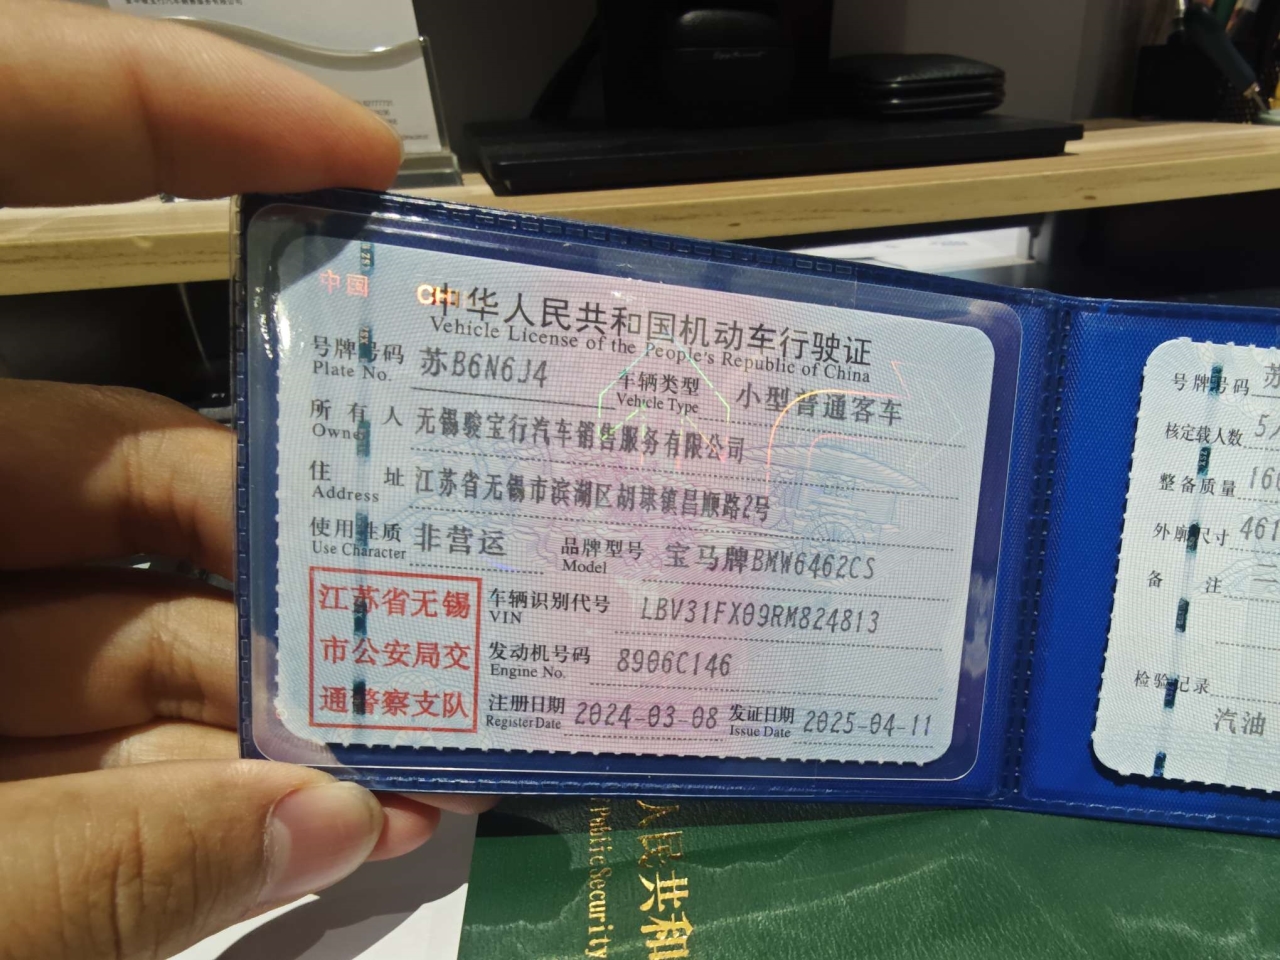 中国
中华人民共和国机动车行驶证
Vehicle License of the People's Republic of China
号牌号码 苏B6N6J4 车辆类型 小型普通客车
Plate No. Vehicle Type
所有人 无锡骏宝行汽车销售服务有限公司
Owner
住址 江苏省无锡市滨湖区胡埭镇昌顺路2号
Address
使用性质 非营运 品牌型号 宝马牌BMW6462CS
Use Character Model
江苏省无锡
市公安局交
通警察支队
车辆识别代号 LBV31FX09RM824813
VIN
发动机号码 8906C146
Engine No.
注册日期 2024-03-08 发证日期 2025-04-11
Register Date Issue Date
号牌号码 苏
核定载人数 5
整备质量
外廓尺寸 461
备注
检验记录
汽油
人民共和
Public Security